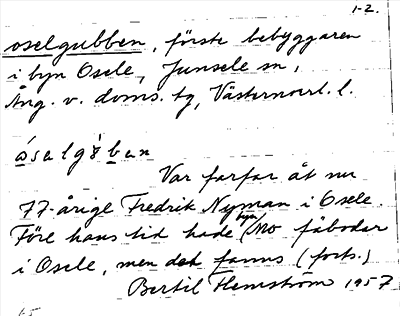 1-2.
oselgubben, förste bebyggaren
i byn Osele, Junsele sn,
Ång. v. doms. tg, Västernorrl. l.
ósalgʹ8ban
Var farfar åt nu
77-årige Fredrik Nyman i Osele.
Före hans tid hade byn Mo fäbodar
i Osele, men det fanns (forts.)
Bertil Flemström 1957